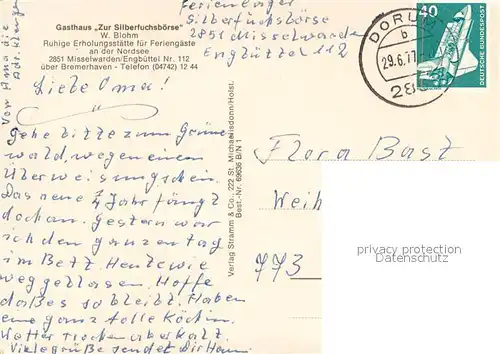 Gasthaus „Zur Silberfuchsbörse"
W. Blohm
Ruhige Erholungsstätte für Feriengäste
an der Nordsee
2851 Misselwarden/Engbüttel Nr. 112
über Bremerhaven - Telefon (04742) 12 44
Silberfuchsbörse
2851 Misselwarden
Engbüttel 112
DORUM
b
29.6.77
285
40
DEUTSCHE BUNDESPOST
Von Oma die
Adr. kriegen
Liebe Oma!
Gehe bitte zum Grüne
wald, wegen einen
Überweisungschein.
Das neue 1/4 Jahr fängt
doch an. Gestern war
ich den ganzen tag
im Bett. Heute wie
weggeblasen. Hoffe
daß es so bleibt. Haben
eine ganz tolle Köchin.
Wetter trocken aber kalt.
Viele grüße sendet Dir Hanni
Verlag Stramm & Co., 222 St. Michaelisdonn/Holst.
Best.-Nr. 69636 B/N 1
Flora Bast
Weih
773
privacy protection
Datenschutz